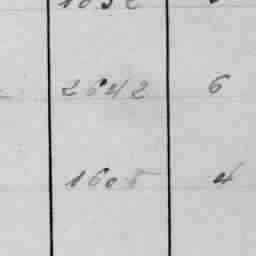 2642 6
1605 4